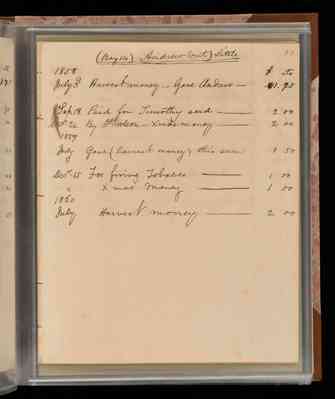 (Boy 14) Andrew Little
1858 $ cts
July 3 Harvest money — Gave Andrew — 1.75
Sep 18 Paid for Timothy seed — 2 00
Xmas money — 2 00
1859
July Gave (harvest money) this sum 1 50
Dec 15 For firing Tobacco — 1 00
" Xmas money — 1 00
1860
July Harvest money — 2 00